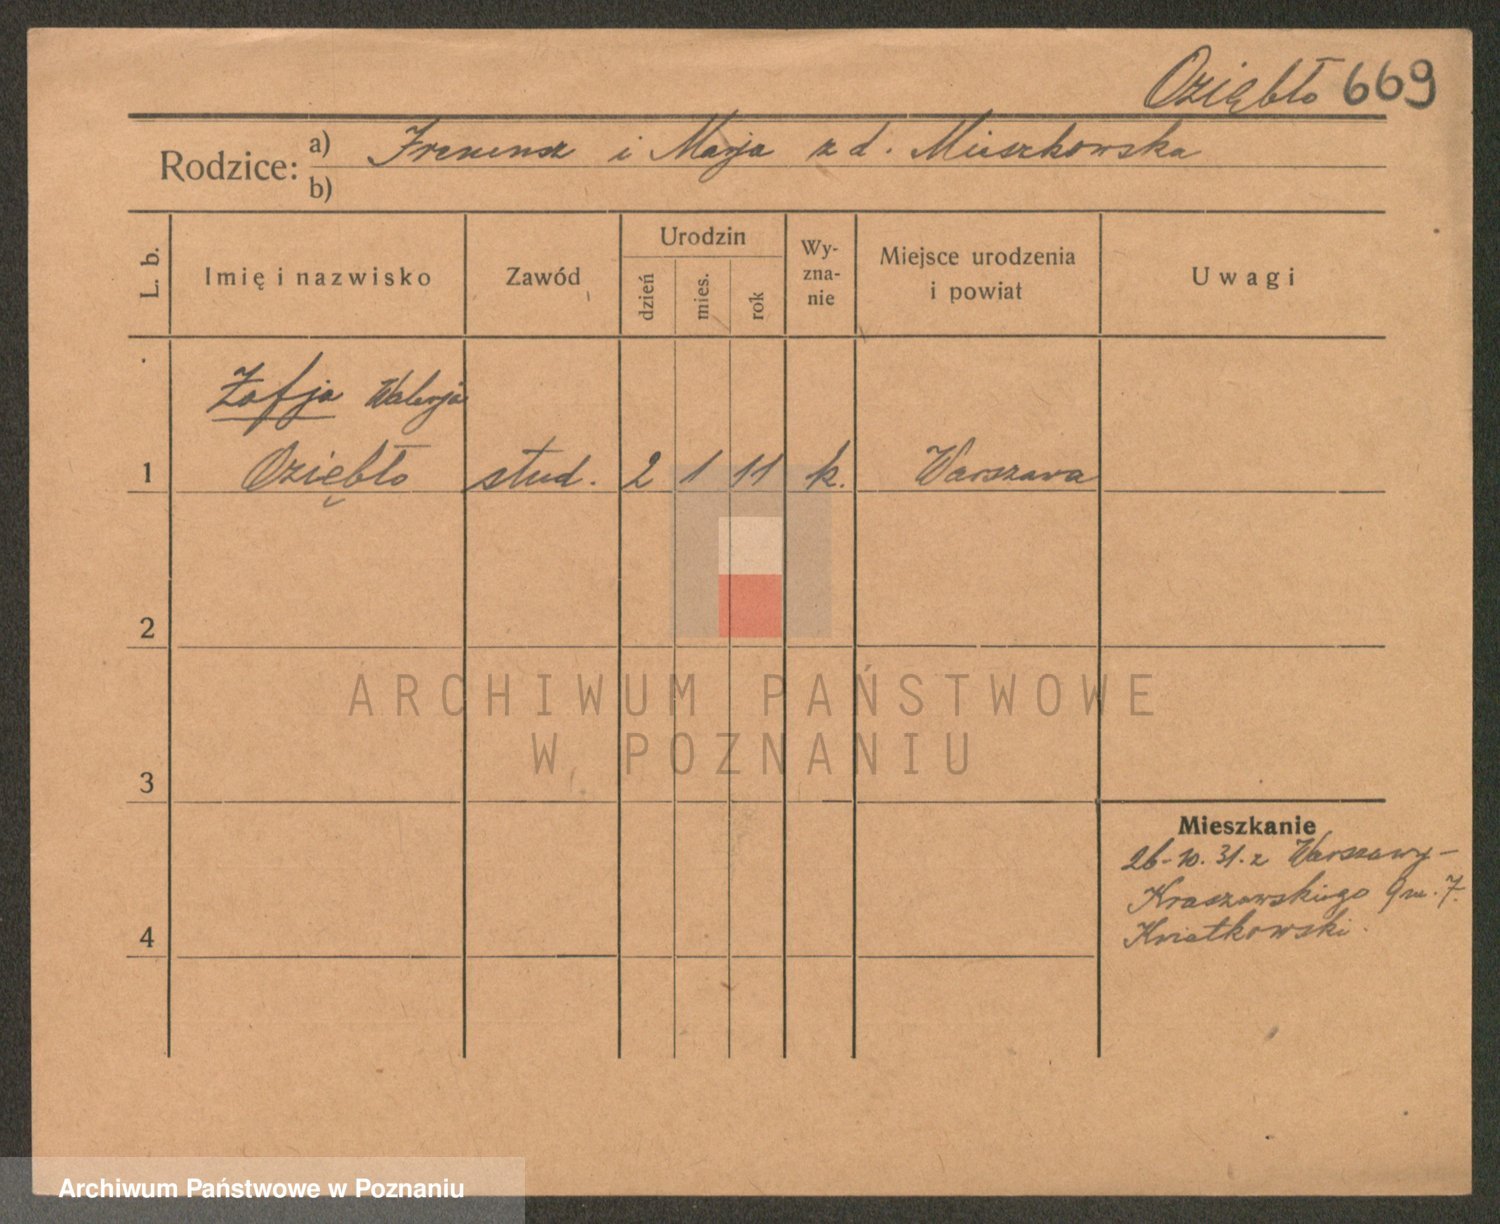 Oziębło 669
Rodzice: a) Ireneusz i Marja z d. Mieszkowska
b)
L. b. Imię i nazwisko Zawód Urodzin dzień mies. rok Wyznanie Miejsce urodzenia i powiat Uwagi
Zofja Walerja
1 Oziębło stud. 2 1 11 k. Warszawa
2
ARCHIWUM PAŃSTWOWE
W POZNANIU
3
Mieszkanie
26-10.31. z Warszawy-
Kraszewskiego 9 m. 7.
4 Kwiatkowski.
Archiwum Państwowe w Poznaniu